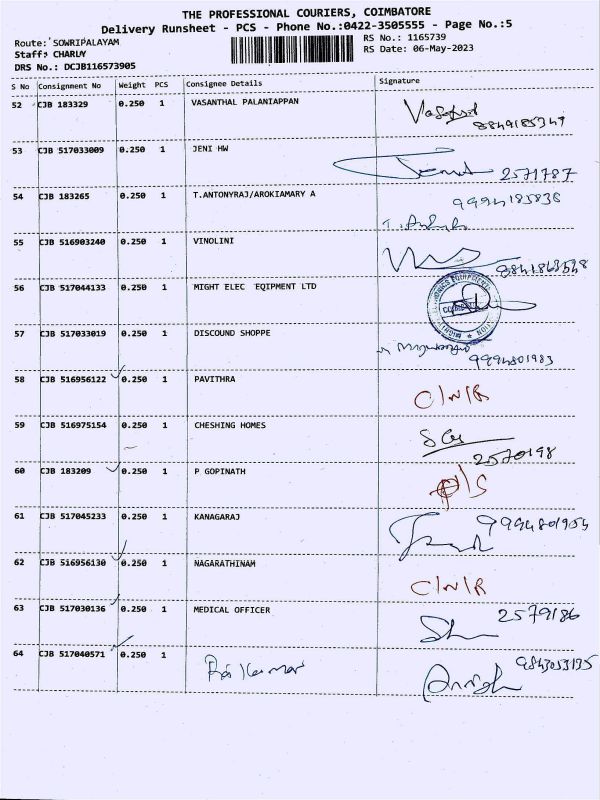 THE PROFESSIONAL COURIERS, COIMBATORE
Delivery Runsheet - PCS - Phone No.:0422-3505555 - Page No.:5
Route: SOWRIPALAYAM RS No.: 1165739
Staff: CHARLY RS Date: 06-May-2023
DRS No.: DCJB116573905
S No Consignment No Weight PCS Consignee Details Signature
52 CJB 183329 0.250 1 VASANTHAL PALANIAPPAN
8849185347
53 CJB 517033009 0.250 1 JENI HW
2571787
54 CJB 183265 0.250 1 T.ANTONYRAJ/AROKIAMARY A
9994185836
55 CJB 516903240 0.250 1 VINOLINI
56 CJB 517044133 0.250 1 MIGHT ELEC EQIPMENT LTD
57 CJB 517033019 0.250 1 DISCOUND SHOPPE
9994801983
58 CJB 516956122 0.250 1 PAVITHRA
C/N/R
59 CJB 516975154 0.250 1 CHESHING HOMES
2570198
60 CJB 183209 0.250 1 P GOPINATH
61 CJB 517045233 0.250 1 KANAGARAJ
9994801954
62 CJB 516956130 0.250 1 NAGARATHINAM
C/N/R
63 CJB 517030136 0.250 1 MEDICAL OFFICER
2579186
64 CJB 517040571 0.250 1 Raj Kumar
9843053195